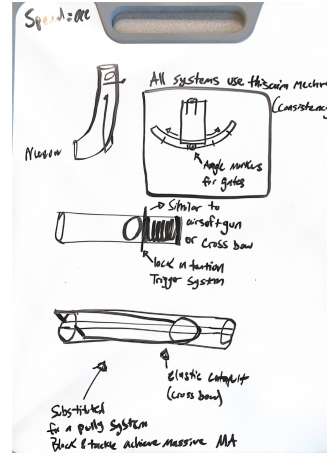 Speed = acc
All systems use this aim mechan
(consistency
Nusow
Angle markers
for gates
Similar to
airsoft gun
or cross bow
lock n tention
Trigger System
Elastic catapult
(cross bow)
Substituted
for a pully system
Block & tackle achieve massive MA